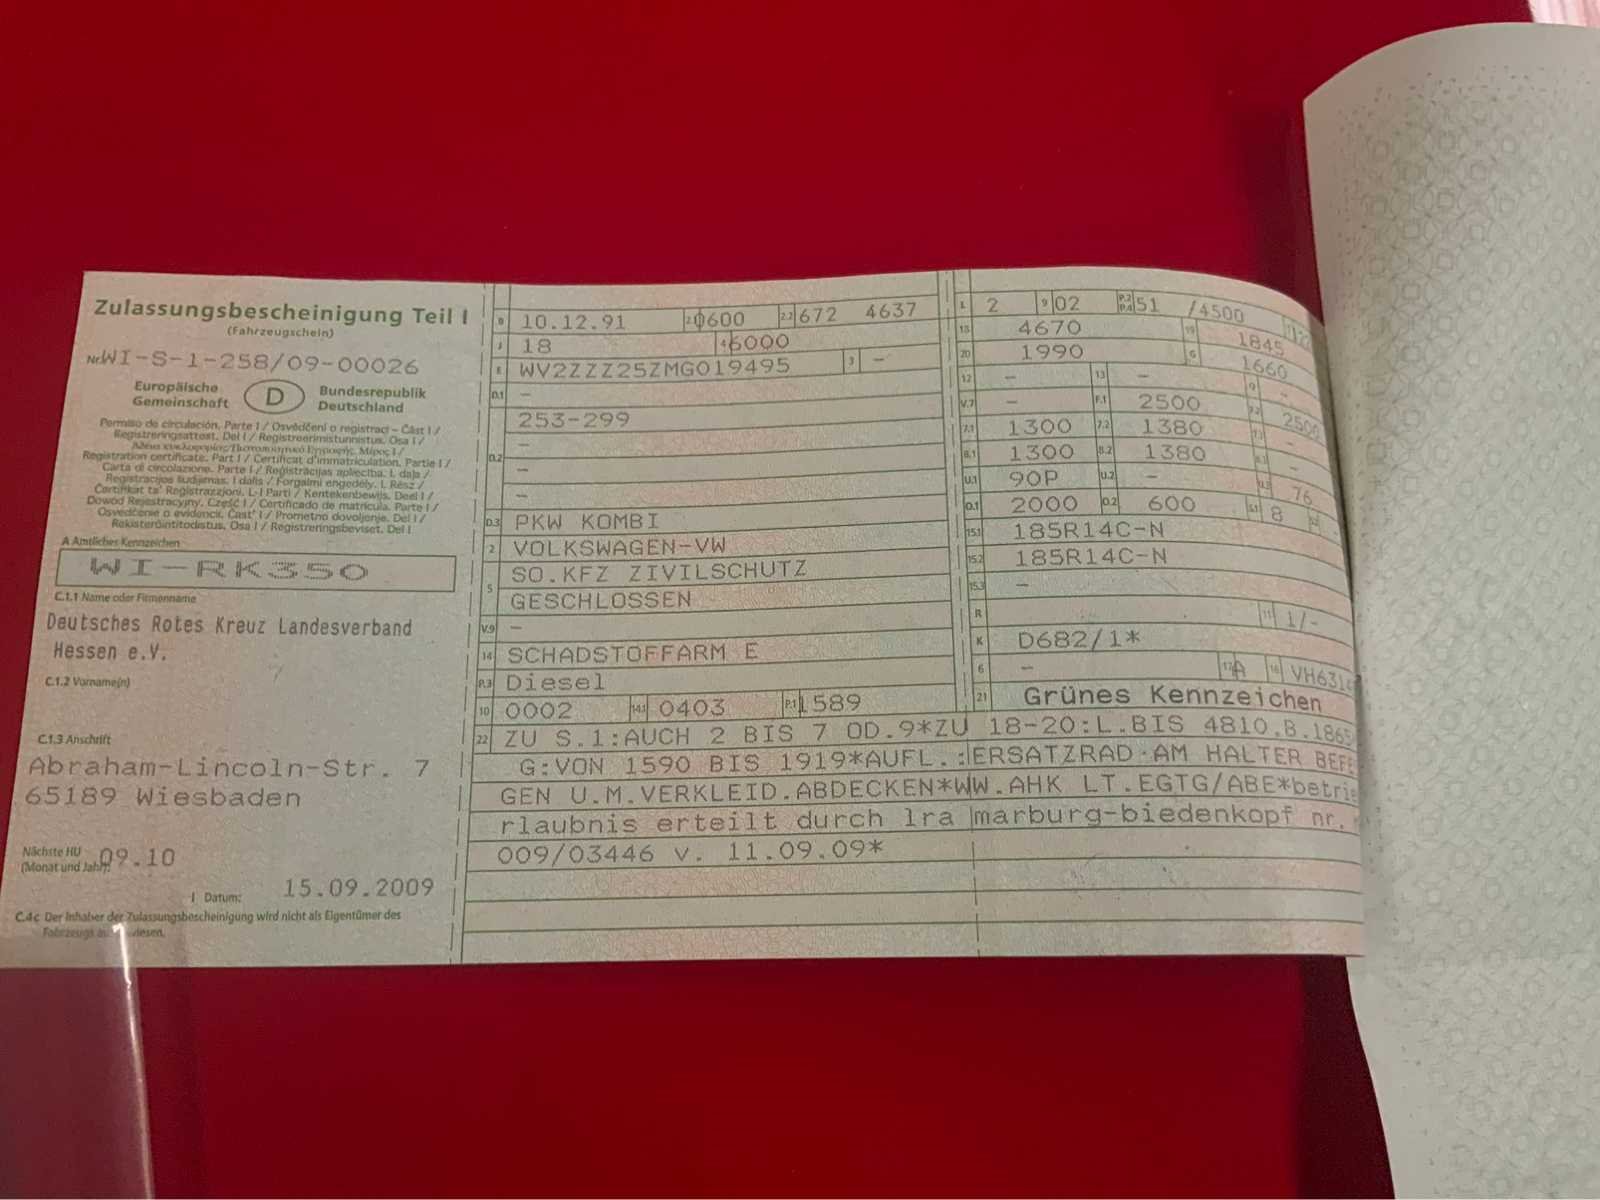 Zulassungsbescheinigung Teil I
(Fahrzeugschein)
Nr. WI-S-1-258/09-00026
Europäische Gemeinschaft D Bundesrepublik Deutschland
Permiso de circulación. Parte I / Osvědčení o registraci – Část I /
Registreringsattest. Del I / Registreerimistunnistus. Osa I /
Άδεια κυκλοφορίας/Πιστοποιητικό Εγγραφής. Μέρος I /
Registration certificate. Part I / Certificat d'immatriculation. Partie I /
Carta di circolazione. Parte I / Reģistrācijas apliecība. I. daļa /
Registracijos liudijimas. I dalis / Forgalmi engedély. I. Rész /
Ċertifikat ta' Reġistrazzjoni. L-I Parti / Kentekenbewijs. Deel I /
Dowód Rejestracyjny. Część I / Certificado de matrícula. Parte I /
Osvedčenie o evidencii. Časť I / Prometno dovoljenje. Del I /
Rekisteröintitodistus. Osa I / Registreringsbeviset. Del I
A Amtliches Kennzeichen
WI-RK350
C.1.1 Name oder Firmenname
Deutsches Rotes Kreuz Landesverband
Hessen e.V.
C.1.2 Vorname(n)
C.1.3 Anschrift
Abraham-Lincoln-Str. 7
65189 Wiesbaden
Nächste HU
(Monat und Jahr): 09.10
I Datum: 15.09.2009
C.4c Der Inhaber der Zulassungsbescheinigung wird nicht als Eigentümer des
Fahrzeugs
B 10.12.91 2.1 0600 2.2 672 4637
J 18 4 6000
E WV2ZZZ25ZMG019495 3 -
D.1 -
253-299
-
D.2
-
-
D.3 PKW KOMBI
2 VOLKSWAGEN-VW
5 SO.KFZ ZIVILSCHUTZ
GESCHLOSSEN
V.9 -
14 SCHADSTOFFARM E
P.3 Diesel
10 0002 14.1 0403 P.1 1589
L 2 9 02 P.2 P.4 51 /4500
18 4670 19 1845
20 1990 G 1660
12 - 13 -
V.7 - F.1 2500 F.2 2500
7.1 1300 7.2 1380 7.3 -
8.1 1300 8.2 1380 8.3 -
U.1 90P U.2 - U.3 76
O.1 2000 O.2 600 S.1 8 S.2
15.1 185R14C-N
15.2 185R14C-N
15.3 -
R 11 1/-
K D682/1*
6 - 17 A 16
21 Grünes Kennzeichen
22 ZU S.1:AUCH 2 BIS 7 OD.9*ZU 18-20:L.BIS 4810,B.1865
G:VON 1590 BIS 1919*AUFL.:ERSATZRAD AM HALTER BEFE
GEN U.M.VERKLEID.ABDECKEN*WW.AHK LT.EGTG/ABE*betrie
rlaubnis erteilt durch lra marburg-biedenkopf nr.
009/03446 v. 11.09.09*